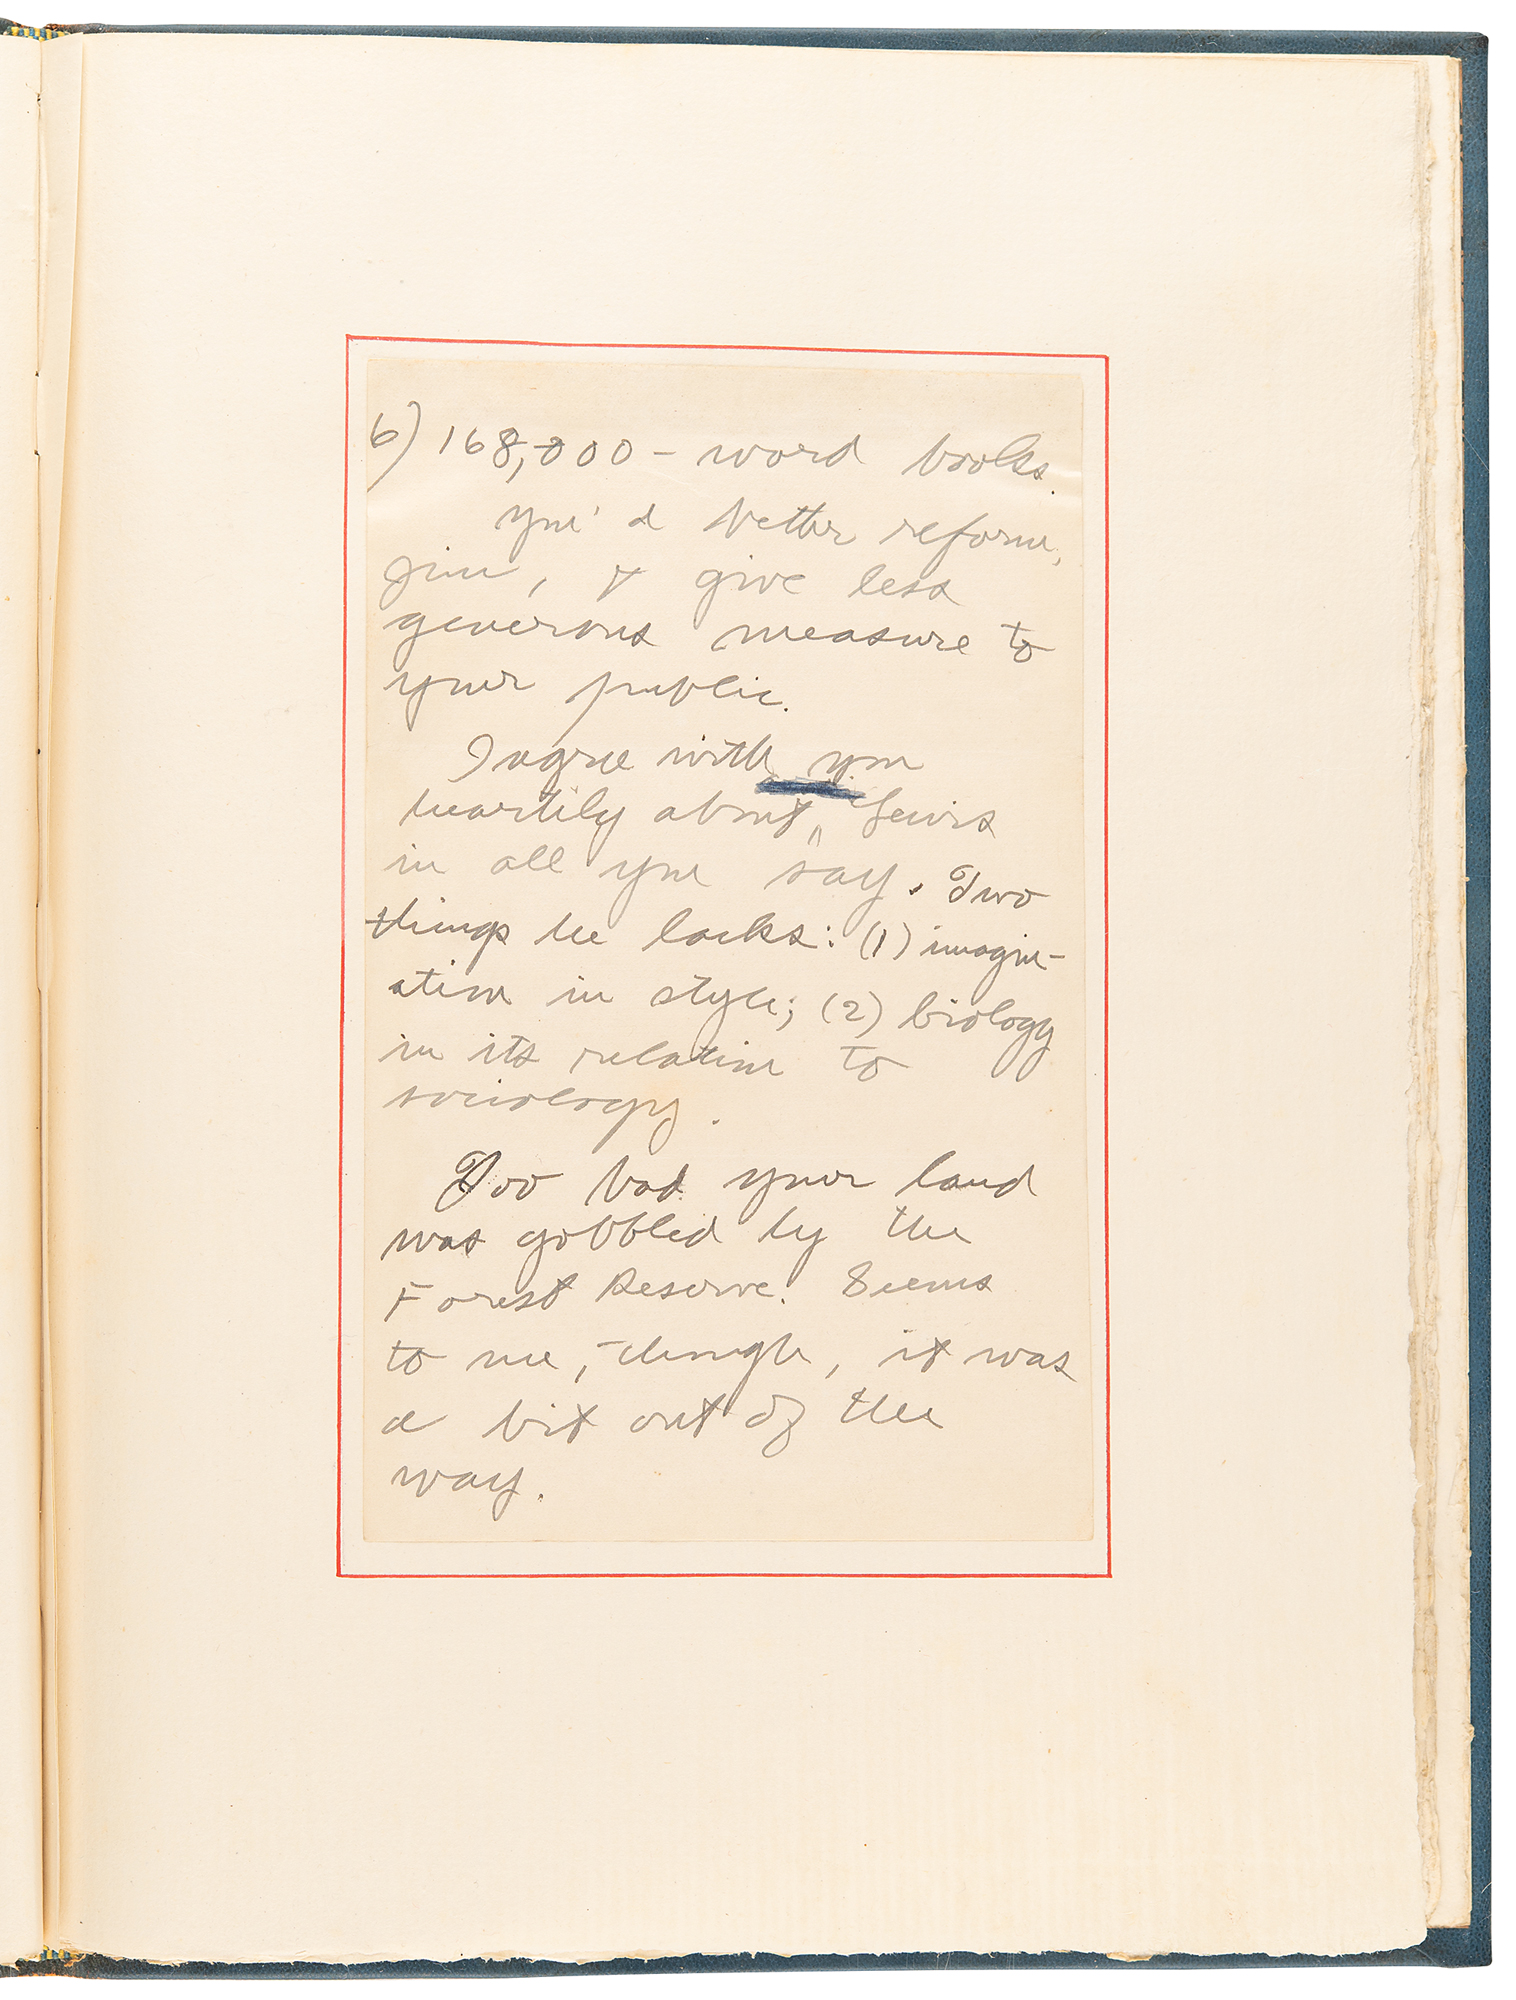 6) 168,000-word books.
You'd better reform,
Jim, & give less
generous measure to
your public.
I agree with you
heartily about Lewis
in all you say. Two
things he lacks: (1) imagin-
ation in style; (2) biology
in its relation to
sociology.
Too bad your land
was gobbled by the
Forest Reserve. Seems
to me, though, it was
a bit out of the
way.